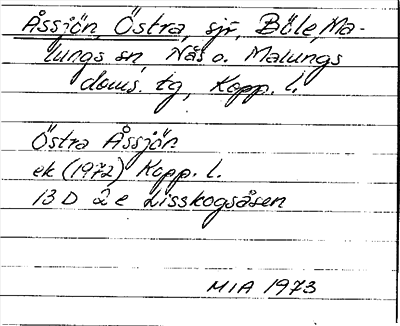 Åssjön, Östra, sjö, Böle, Ma-
lungs sn, Nås o. Malungs
doms. tg, Kopp. l.
Östra Åssjön
ek (1972) Kopp. l.
13 D 2 e Lisskogsåsen
MIA 1973